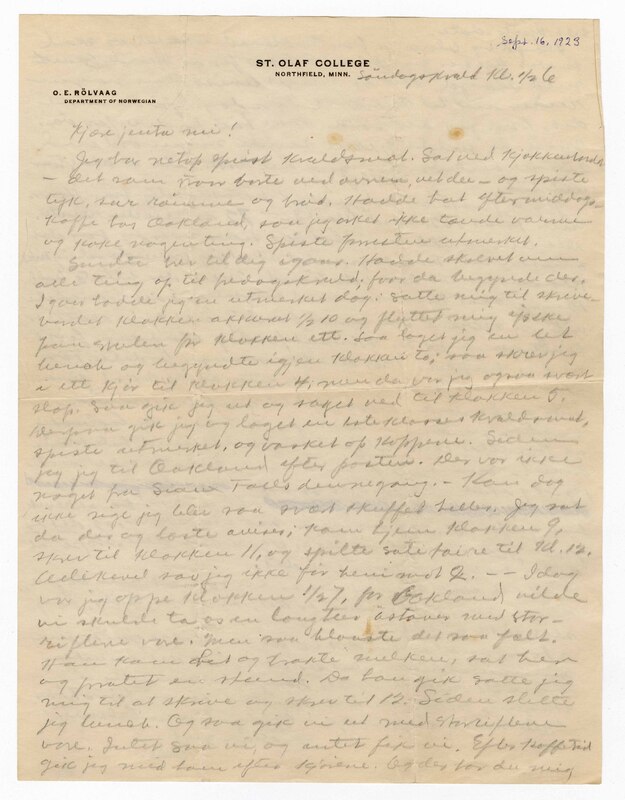 Sept. 16, 1923
ST. OLAF COLLEGE
NORTHFIELD, MINN.
Söndagskvæld Kl. 1/2 6
O. E. RÖLVAAG
DEPARTMENT OF NORWEGIAN
Kjære jenta mi!
Jeg har netop spist kveldsmat. Sat ved kjøkkenbordet
— det som staar borte ved ovnen, vet du — og spiste
tyk, sur römme og bröd. Hadde hat eftermiddags-
kaffe hos Oakland, saa jeg orket ikke tænde varme
og koke nogenting. Spiste utmerket.
Sendte brev til dig igaar. Hadde
alle ting op til fredagskveld, for da begyndte det.
I gaar hadde jeg en utmerket dag. Satte mig til skrive-
bordet klokken akkurat 1/2 10 og flyttet mig ikke
fra stolen för klokken ett. Saa laget jeg en let
lunch og begyndte igjen klokken to; saa skrev jeg
i ett kjör til klokken 4; men da var jeg ogsaa svært
slap. Saa gik jeg ut og saget ved til klokken 5.
Derpaa gik jeg og laget en 1ste klasses kveldsmat,
spiste utmerket, og vasket op koppene. Siden
gik jeg til Oakland efter posten. Der var ikke
noget fra Sioux Falls denne gang. – Kan dog
ikke sige jeg blev saa svært skuffet heller. Jeg sat
da der og læste aviser; kom hjem klokken 9,
skrev til klokken 11, og spilte solitaire til Kl. 12.
Allikevel sov jeg ikke för henimot 2. — — Idag
var jeg oppe klokken 1/2 7, for Oakland vilde
vi skulde ta os en langtur östover med stor-
riflene vore. Men saa blaaste det saa fælt.
Han kom hit og melken, sat her
og pratet en stund. Da han gik satte jeg
mig til at skrive og skrev til 12. Siden
jeg lunch. Og saa gik vi ut med storriflene
vore. Intet saa vi, og intet fik vi. Efter kaffetid
gik jeg med ham efter kjörene. Og der har du mig